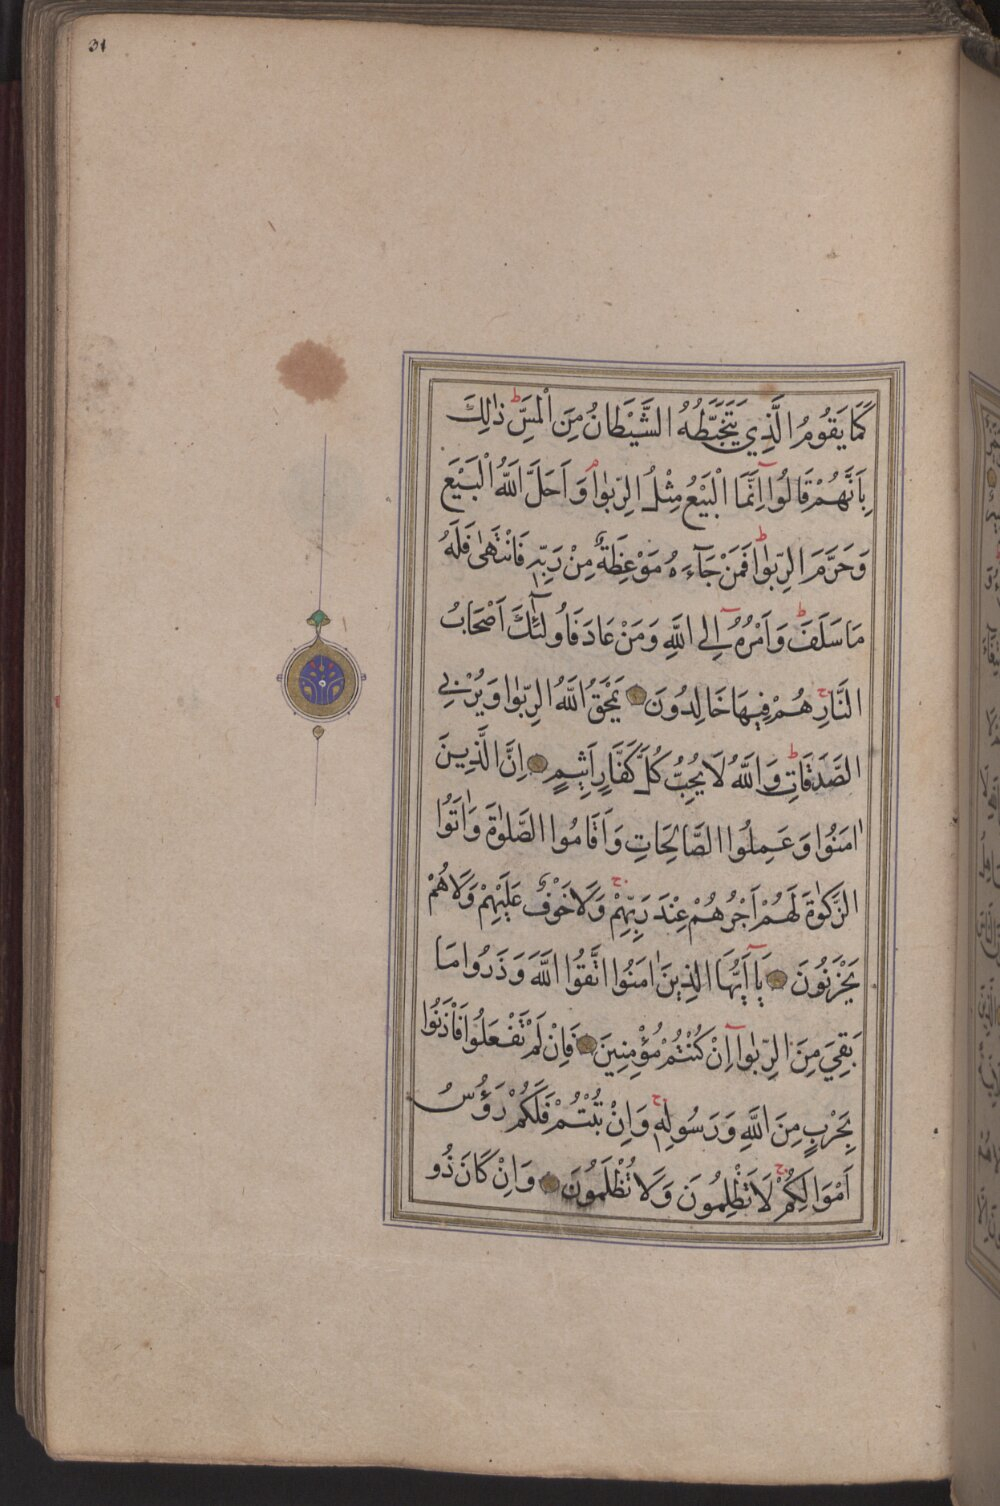 31
كَمَا يَقُومُ الَّذِي يَتَخَبَّطُهُ الشَّيْطَانُ مِنَ الْمَسِّ ط ذٰلِكَ
بِاَنَّهُمْ قَالُوا اِنَّمَا الْبَيْعُ مِثْلُ الرِّبٰوا م وَاَحَلَّ اللّٰهُ الْبَيْعَ
وَحَرَّمَ الرِّبٰوا ط فَمَنْ جَآءَهُ مَوْعِظَةٌ مِنْ رَبِّهٖ فَانْتَهٰى فَلَهُ
مَا سَلَفَ ط وَاَمْرُهُ اِلَى اللّٰهِ وَمَنْ عَادَ فَاُولٰٓئِكَ اَصْحَابُ
النَّارِ ج هُمْ فِيهَا خَالِدُونَ يَمْحَقُ اللّٰهُ الرِّبٰوا وَيُرْبِي
الصَّدَقَاتِ ط وَاللّٰهُ لَا يُحِبُّ كُلَّ كَفَّارٍ اَثِيمٍ اِنَّ الَّذِينَ
اٰمَنُوا وَعَمِلُوا الصَّالِحَاتِ وَاَقَامُوا الصَّلٰوةَ وَاٰتَوُا
الزَّكٰوةَ لَهُمْ اَجْرُهُمْ عِنْدَ رَبِّهِمْ ج وَلَا خَوْفٌ عَلَيْهِمْ وَلَا هُمْ
يَحْزَنُونَ يَا اَيُّهَا الَّذِينَ اٰمَنُوا اتَّقُوا اللّٰهَ وَذَرُوا مَا
بَقِيَ مِنَ الرِّبٰوا اِنْ كُنْتُمْ مُؤْمِنِينَ فَاِنْ لَمْ تَفْعَلُوا فَأْذَنُوا
بِحَرْبٍ مِنَ اللّٰهِ وَرَسُولِهٖ ج وَاِنْ تُبْتُمْ فَلَكُمْ رَؤُسُ
اَمْوَالِكُمْ ج لَا تَظْلِمُونَ وَلَا تُظْلَمُونَ وَاِنْ كَانَ ذُو